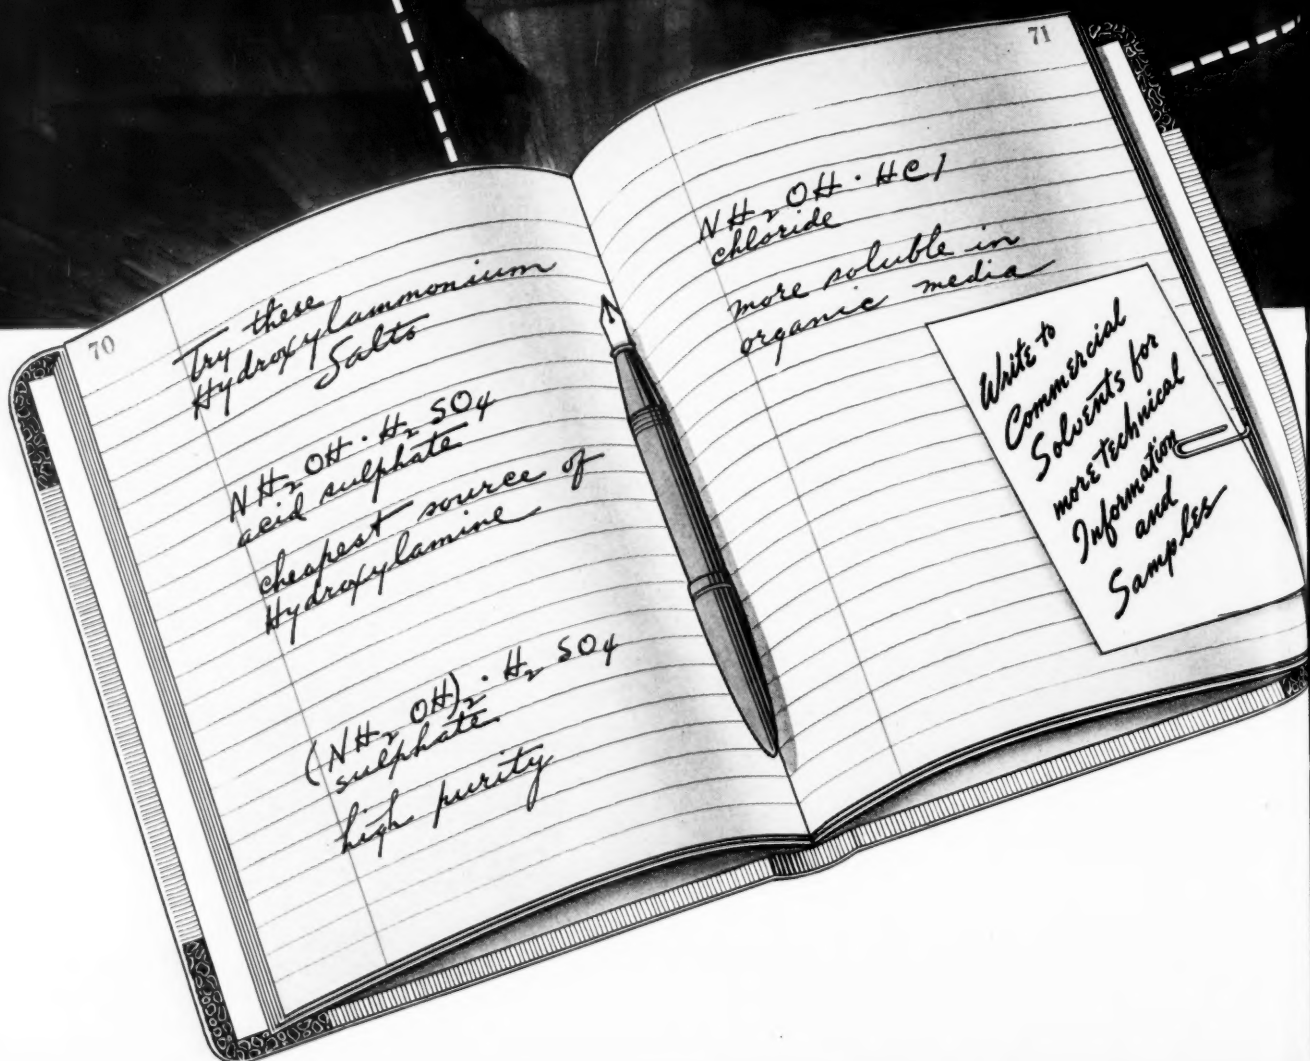 70
Try these
Hydroxylammonium
Salts
NH₂OH · H₂SO₄
acid sulphate
cheapest source of
Hydroxylamine
(NH₂OH)₂ · H₂SO₄
sulphate
high purity
71
NH₂OH · HCl
chloride
more soluble in
organic media
Write to
Commercial
Solvents for
more technical
Information
and
Samples